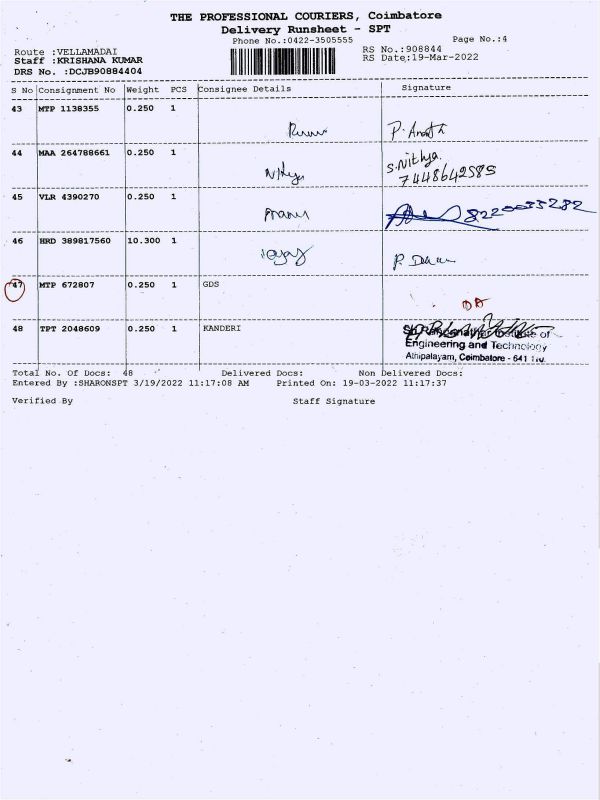 THE PROFESSIONAL COURIERS, Coimbatore
Delivery Runsheet - SPT
Phone No.:0422-3505555 Page No.:4
Route :VELLAMADAI RS No.:908844
Staff :KRISHANA KUMAR RS Date:19-Mar-2022
DRS No. :DCJB90884404
S No Consignment No Weight PCS Consignee Details Signature
43 MTP 1138355 0.250 1
44 MAA 264788661 0.250 1 S.Nithya
7448642585
45 VLR 4390270 0.250 1
46 HRD 389817560 10.300 1
47 MTP 672807 0.250 1 GDS
48 TPT 2048609 0.250 1 KANDERI
Engineering and Technology
Athipalayam, Coimbatore - 641
Total No. Of Docs: 48 Delivered Docs: Non Delivered Docs:
Entered By :SHARONSPT 3/19/2022 11:17:08 AM Printed On: 19-03-2022 11:17:37
Verified By Staff Signature